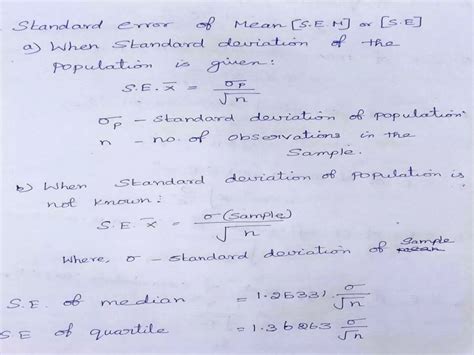 Standard error of Mean [S.E.M] or [S.E]
a) When Standard deviation of the
population is given:
S.E. x̅ = σp / √n
σp - Standard deviation of population
n - no. of observations in the
Sample.
b) When Standard deviation of population is
not known:
S.E. x̅ = σ(Sample) / √n
Where, σ - standard deviation of Sample
S.E. of median = 1.25331 σ/√n
S E of quartile = 1.36263 σ/√n